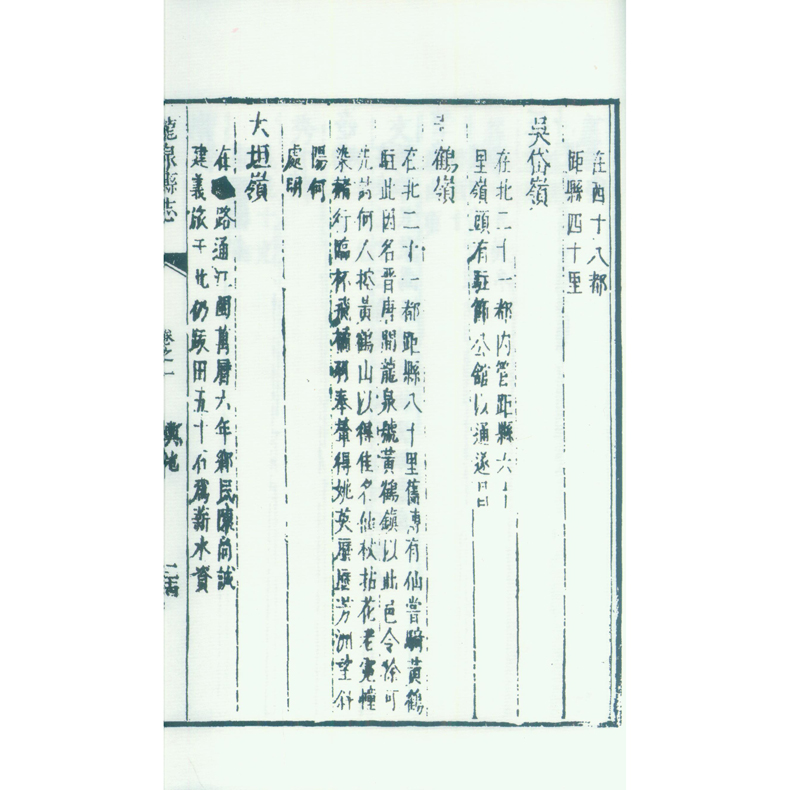 在西十八都
距縣四十里
吳岱嶺
在北二十一都内管距縣六十
里嶺頭有駐節公館以通遂昌
鶴嶺
在北二十一都距縣八十里舊傳有仙嘗騎黃鶴
駐此因名晋唐間龍泉號黃鶴鎮以此邑令徐可
先詩何人控黃鶴山以得佳名仙杖拈花老憲幢
染緒行臨杯飛橘羽奉聲得姚英歷歷芳洲望斜
陽何
處明
大垣嶺
在路通江閩萬曆六年鄉民陳尚誠
建義旅于此仍撥田五十石爲薪水資
龍泉縣志
卷之一
輿地
二十四